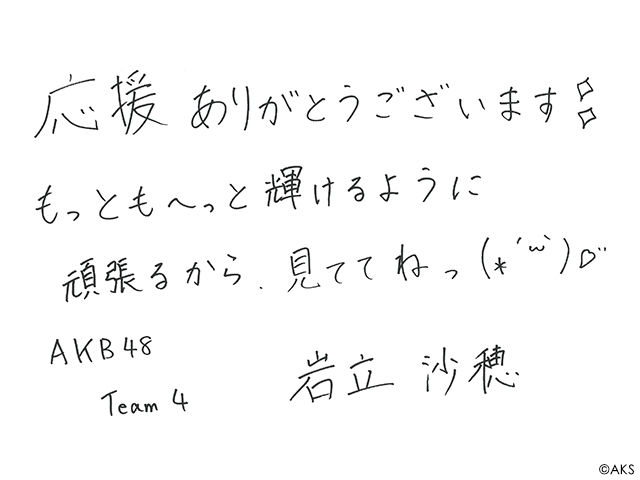 応援 ありがとうございます✧✧
もっとも〜っと輝けるように
頑張るから、見ててねっ(*´ω`)♡"
AKB48
Team 4
岩立 沙穂
©AKS